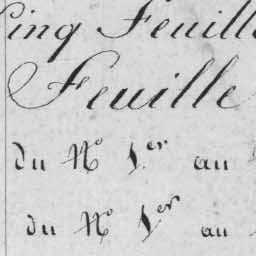 Cinq Feuill
Feuille
du N° 1er au
du N° 1er au